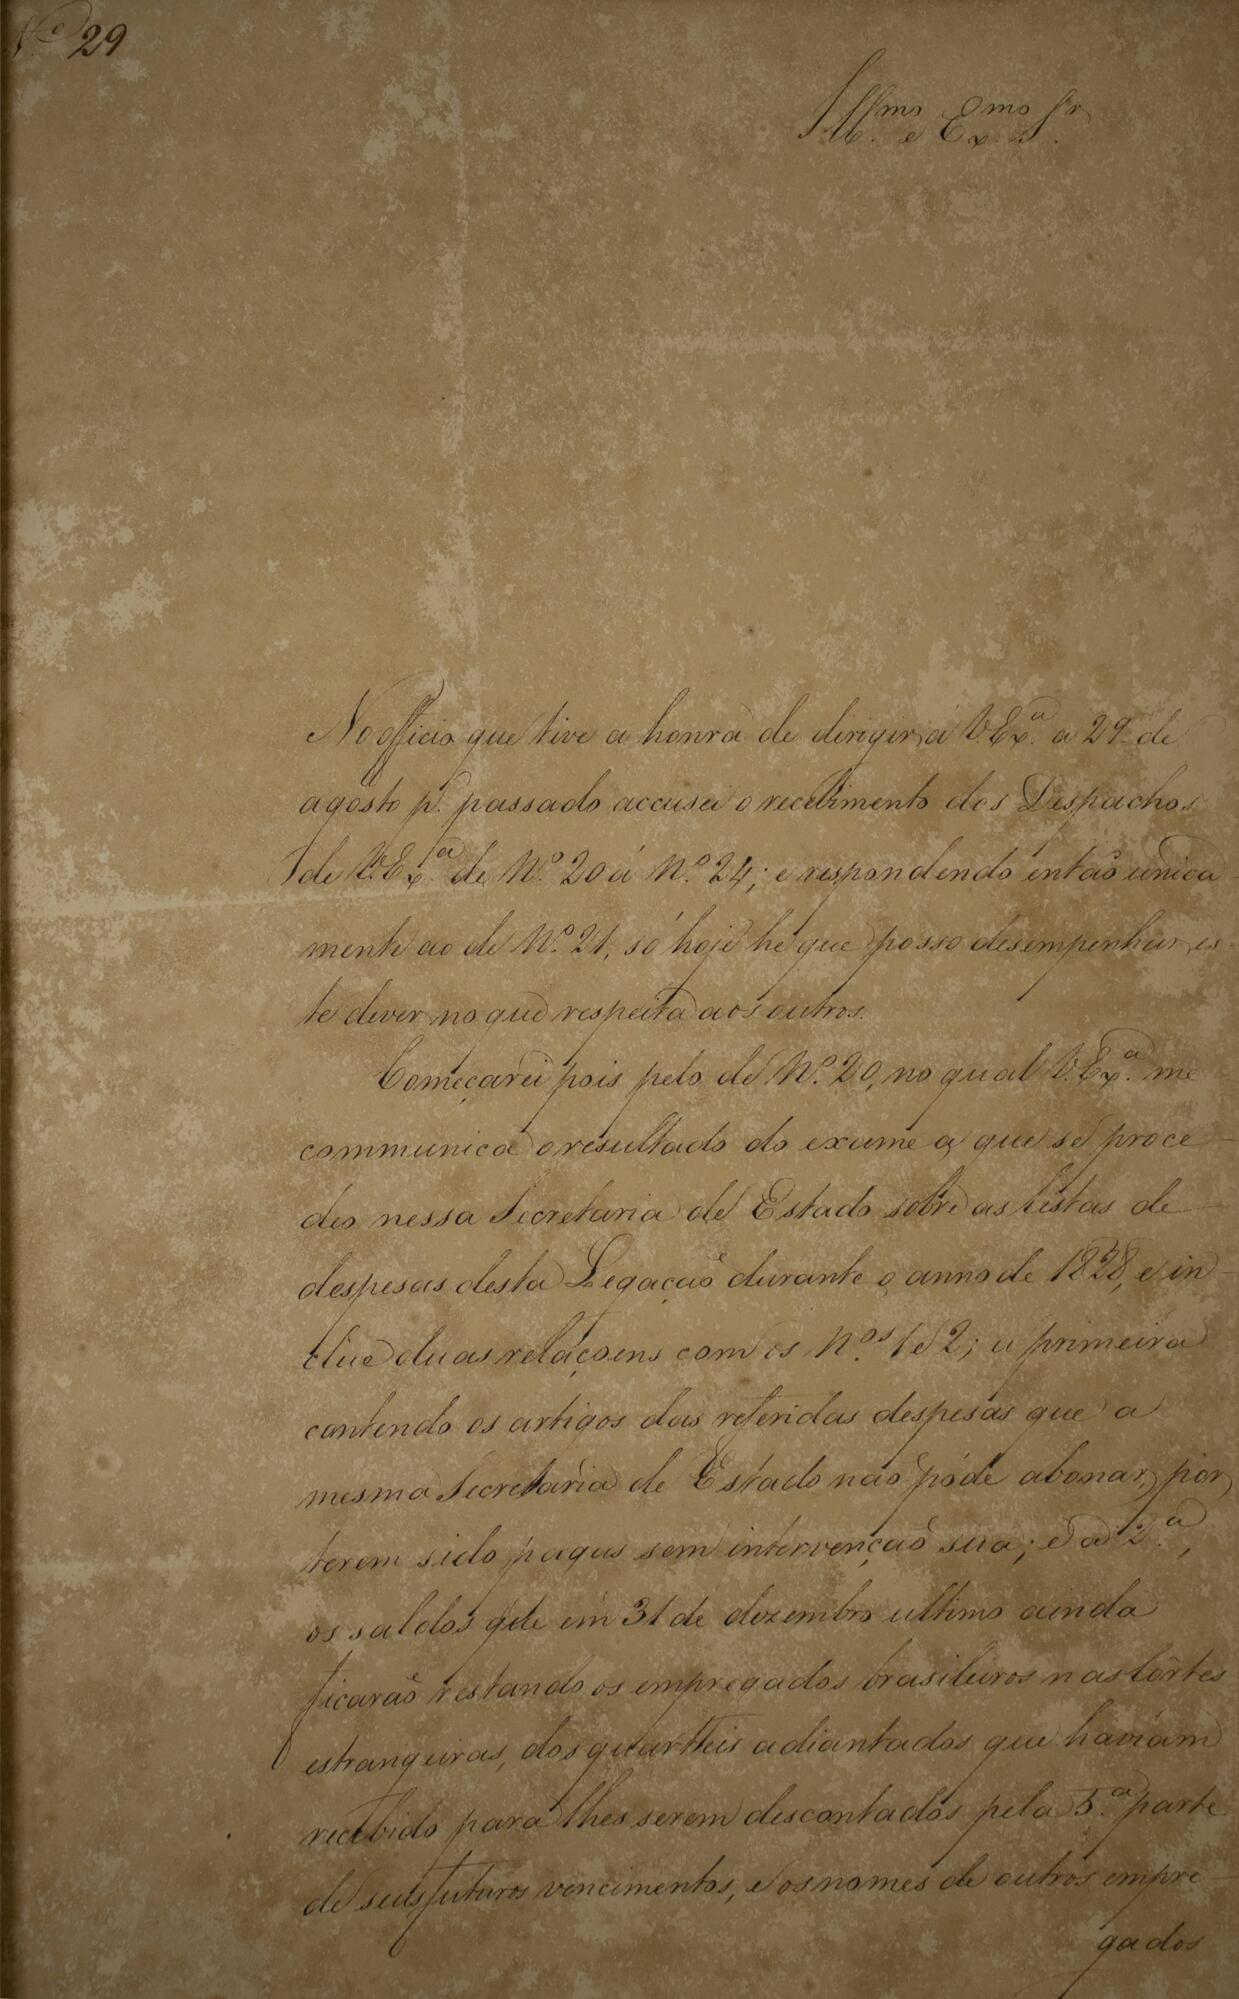 Nº 29
Illmo. e Exmo. Sr.
No officio que tive a honra de dirigir á V.Exª. a 29 de
agosto p. passado accusei o recebimento dos Despachos
de V.Exª. de Nº. 20 á Nº. 24; e respondendo então unica
mente ao de Nº. 21, só hoje he que posso desempenhar es
te dever no que respeita aos outros.
Começarei pois pelo de Nº. 20, no qual V.Exª. me
communica o resultado do exame a que se proce-
deo nessa Secretaria de Estado sobre as listas de
despesas desta Legação durante o anno de 1828, e in-
clue duas relaçoens com os N.os 1 e 2; a primeira
contendo os artigos das referidas despesas que a
mesma Secretaria de Estado não póde abonar, por
terem sido pagas sem intervenção sua; e a 2.ª,
os saldos que em 31 de dezembro ultimo ainda
ficarão restando os empregados brasileiros nas Côrtes
estrangeiras, dos quarteis adiantados que haviam
recebido para lhes serem descontados pela 5.ª parte
de seus futuros vencimentos, e os nomes de outros empre-
gados